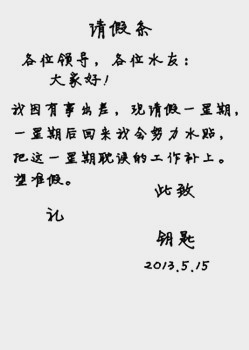 请假条
各位领导，各位水友：
大家好！
我因有事出差，现请假一星期，
一星期后回来我会努力水贴，
把这一星期耽误的工作补上。
望准假。
此致
礼
钥匙
2013.5.15